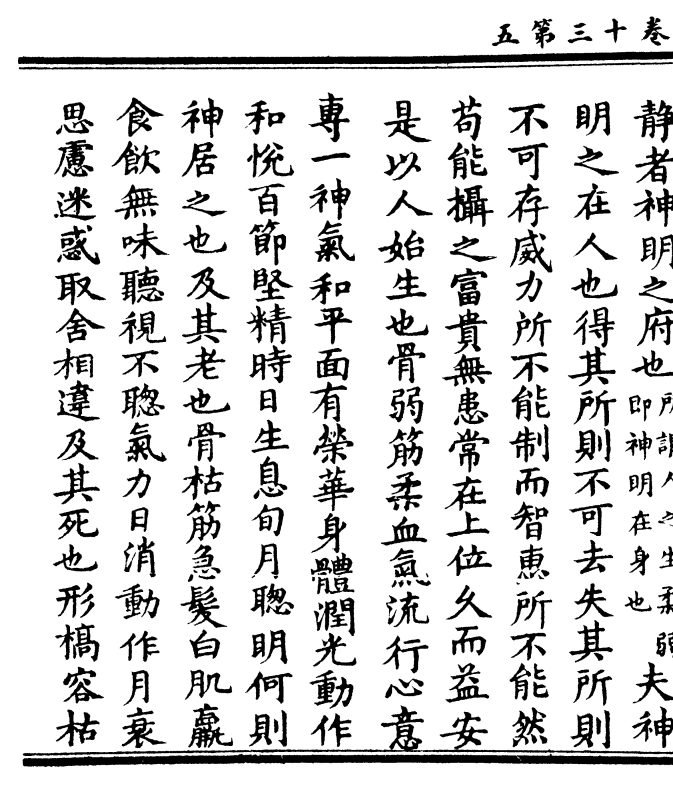 卷十三第五
静者神明之府也所謂人之生柔弱即神明在身也夫神
明之在人也得其所則不可去失其所則
不可存威力所不能制而智惠所不能然
苟能攝之富貴無患常在上位久而益安
是以人始生也骨弱筋柔血氣流行心意
專一神氣和平面有榮華身體潤光動作
和悅百節堅精時日生息旬月聰明何則
神居之也及其老也骨枯筋急髮白肌羸
食飲無味聽視不聰氣力日消動作月衰
思慮迷惑取舍相違及其死也形槁容枯